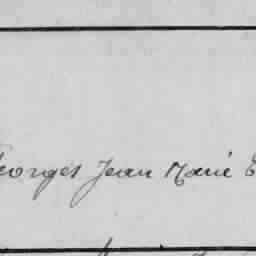 eorges Jean Marie E